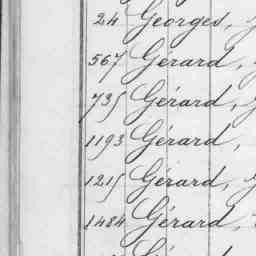 24 Georges,
567 Gérard,
735 Gérard,
1193 Gérard,
1215 Gérard,
1484 Gérard,